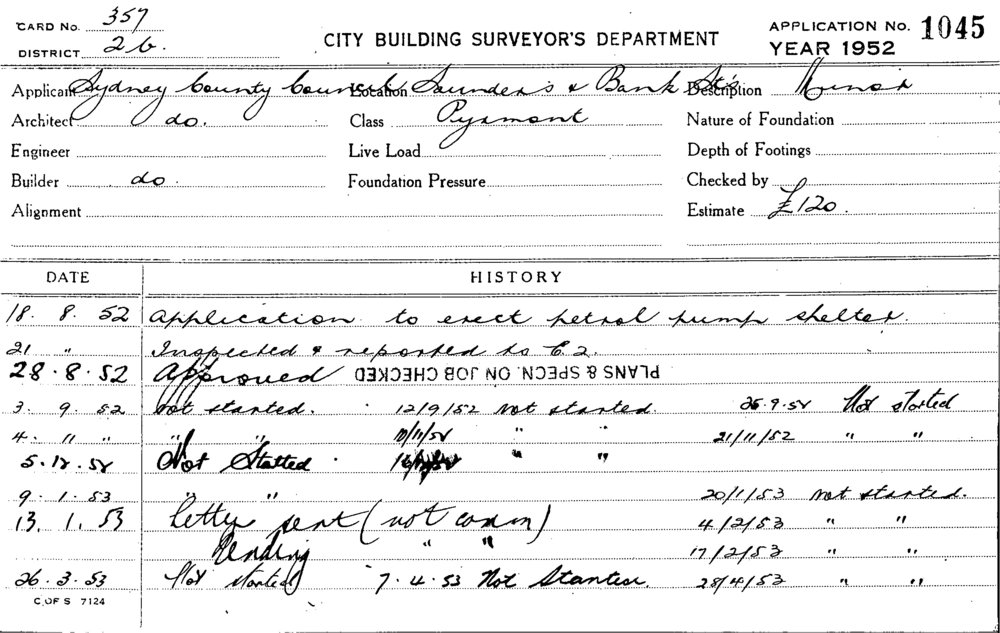 CARD No. 357
DISTRICT 2b.
CITY BUILDING SURVEYOR'S DEPARTMENT
APPLICATION No. 1045
YEAR 1952
Applicant Sydney County Council Location Saunder's & Bank Sts Description Minor
Architect do. Class Pyrmont Nature of Foundation
Engineer Live Load Depth of Footings
Builder do. Foundation Pressure Checked by
Alignment Estimate £120.
DATE HISTORY
18. 8. 52 Application to erect petrol pump shelter.
21 " Inspected & reported to C.2.
28.8.52 Approved PLANS & SPECN. ON JOB CHECKED
3. 9. 52 not started. 12/9/52 not started. 25.9.52 Not started
4. 11 " " " 10/11/52 " " 21/11/52 " "
5.12.52 Not Started. " "
9. 1. 53 " " 20/1/53 not started.
13. 1. 53 letter sent (not comm) 4/2/53 " "
Pending " " 17/2/53 " "
26.3.53 Not started 7.4.53 Not Started. 28/4/53 " "
C. OF S 7124